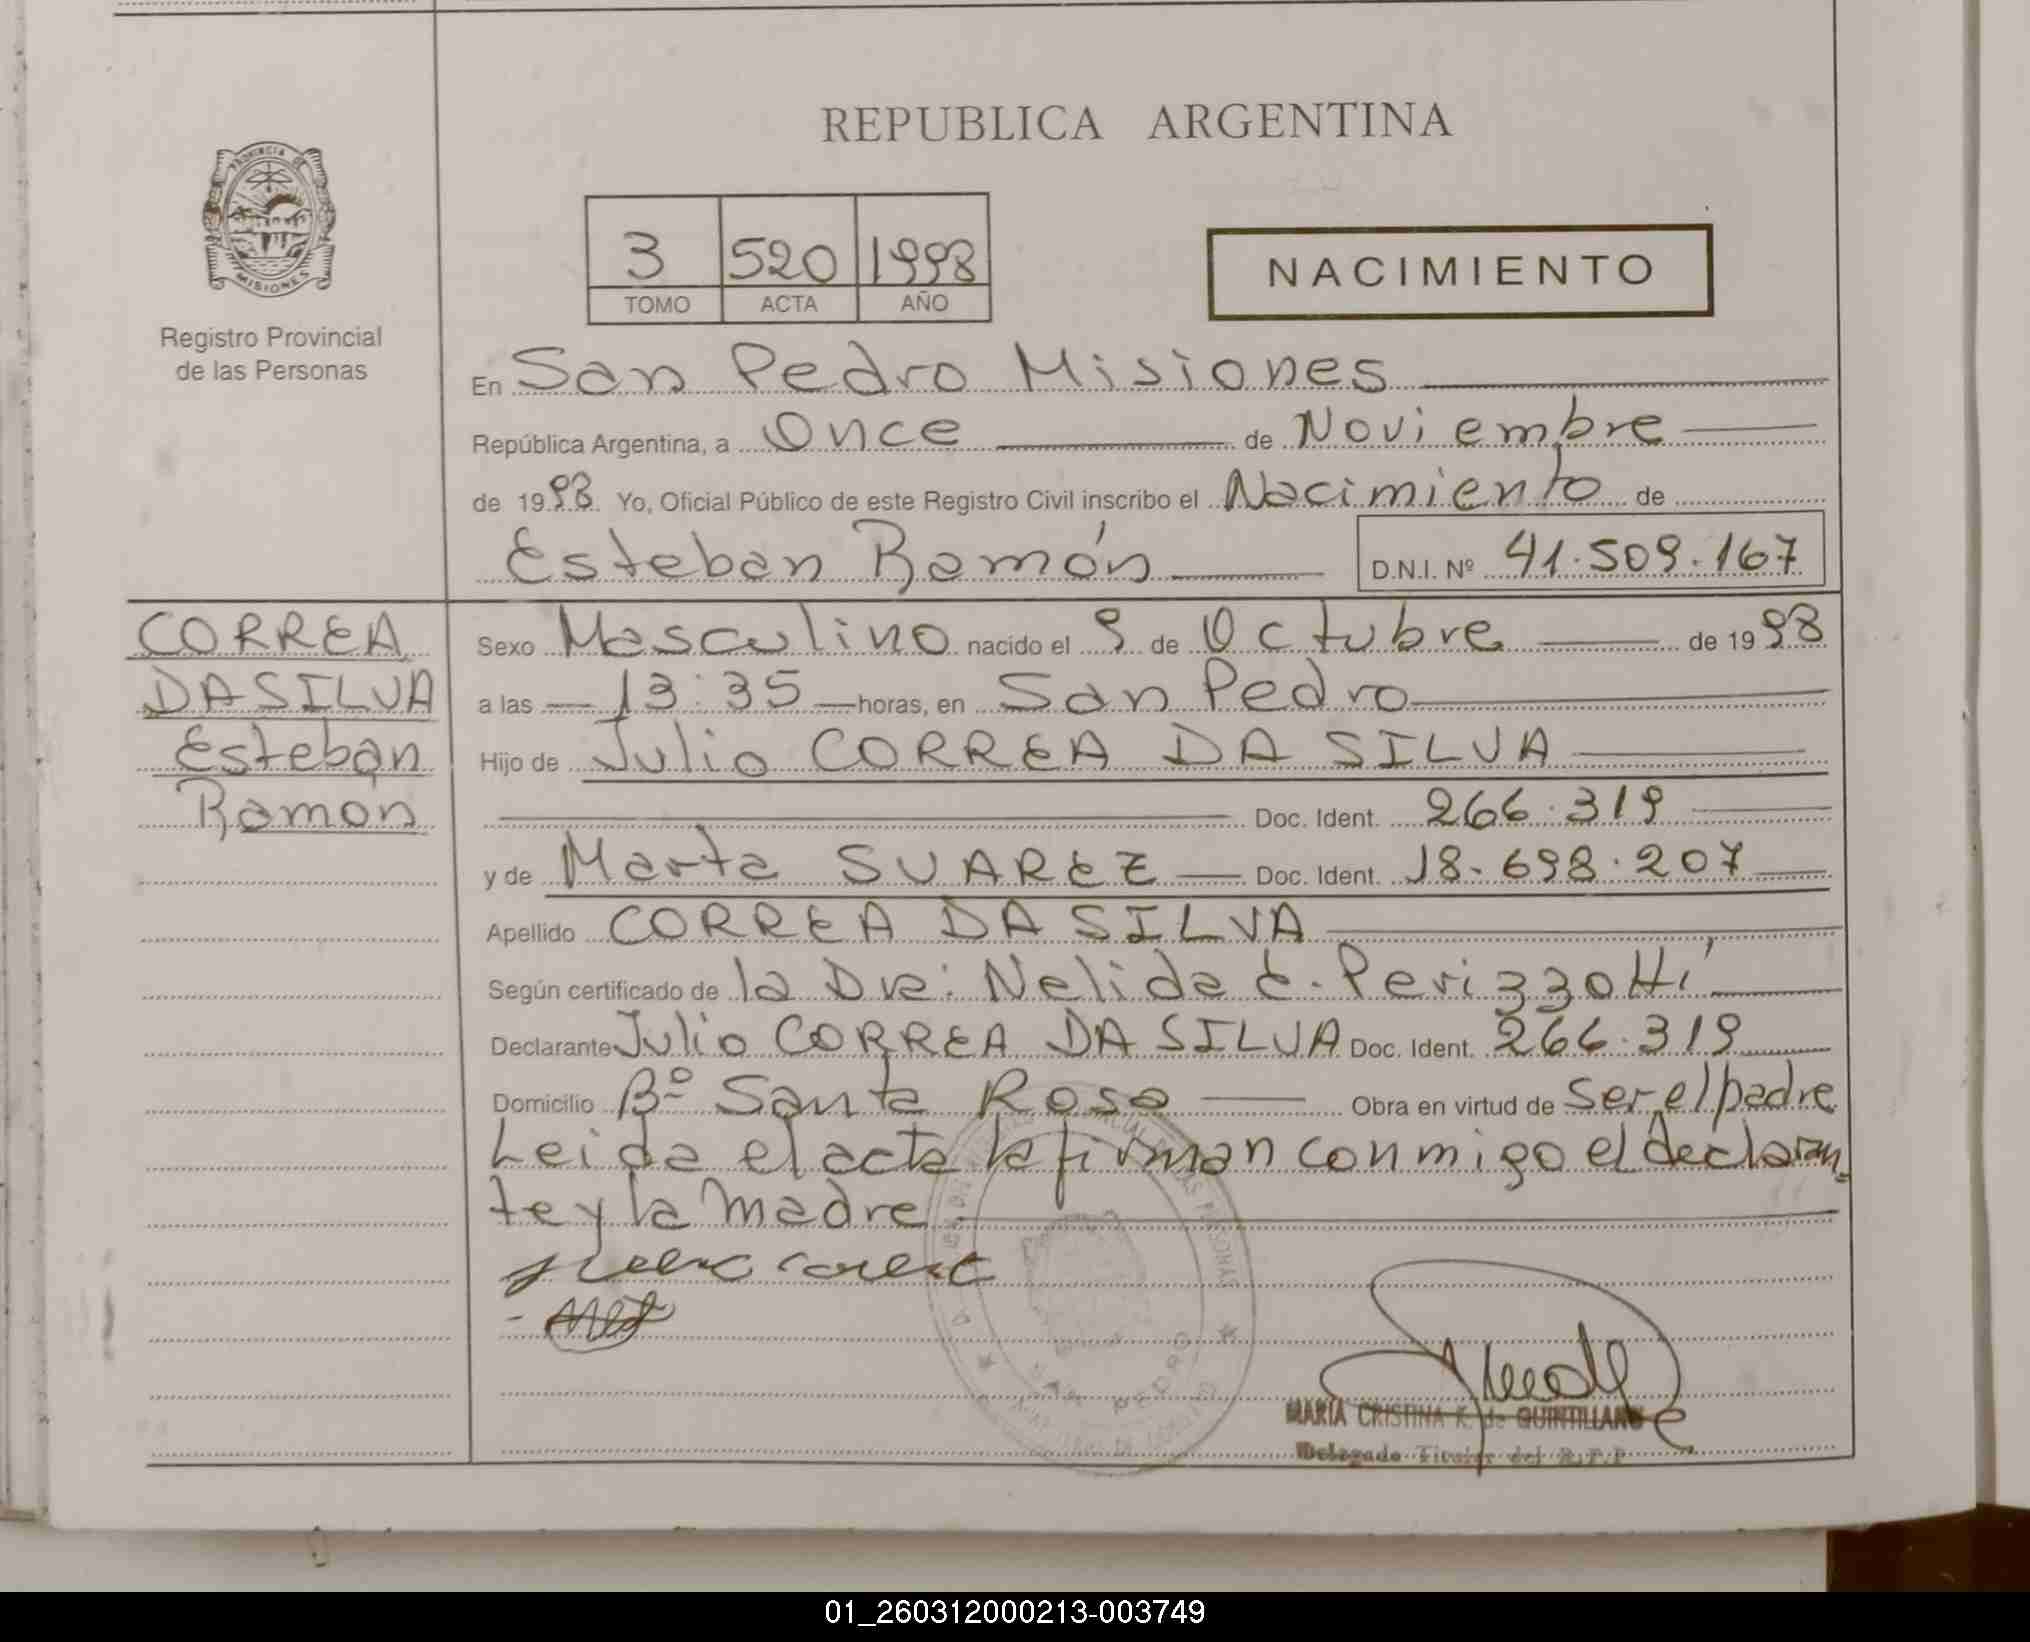 REPUBLICA ARGENTINA
PROVINCIA DE
MISIONES
Registro Provincial
de las Personas
3 520 1998
TOMO ACTA AÑO
NACIMIENTO
En San Pedro Misiones
República Argentina, a Once de Noviembre
de 1998 Yo, Oficial Público de este Registro Civil inscribo el Nacimiento de
Esteban Ramón D.N.I. Nº 41.509.167
CORREA
DA SILVA
Esteban
Ramón
Sexo Masculino nacido el 9 de Octubre de 1998
a las 13:35 horas, en San Pedro
Hijo de Julio CORREA DA SILVA
Doc. Ident. 266.319
y de Marta SUAREZ Doc. Ident. 18.698.207
Apellido CORREA DA SILVA
Según certificado de la Dra: Nelida E. Perizzotti
Declarante Julio CORREA DA SILVA Doc. Ident. 266.319
Domicilio Bº Santa Rosa Obra en virtud de ser el padre
Leida el acta la firman conmigo el declaran
te y la madre
SAN PEDRO
MARIA CRISTINA K. de QUINTILLANO
Delegado Titular del R.P.P
01_260312000213-003749